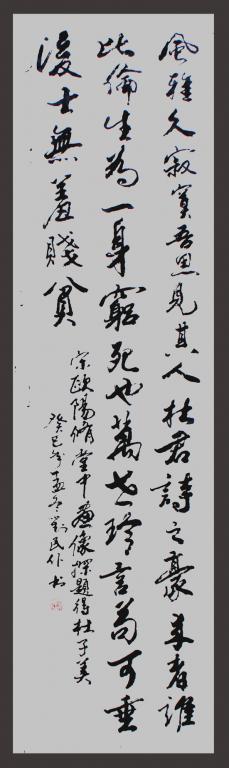 風雅久寂寞吾思見其人杜君詩之豪來者誰
比倫生為一身窮死也萬世珍言苟可垂
後士無羞賤貧
宋歐陽脩堂中畫像探題得杜子美
癸巳年孟冬劉民仆书